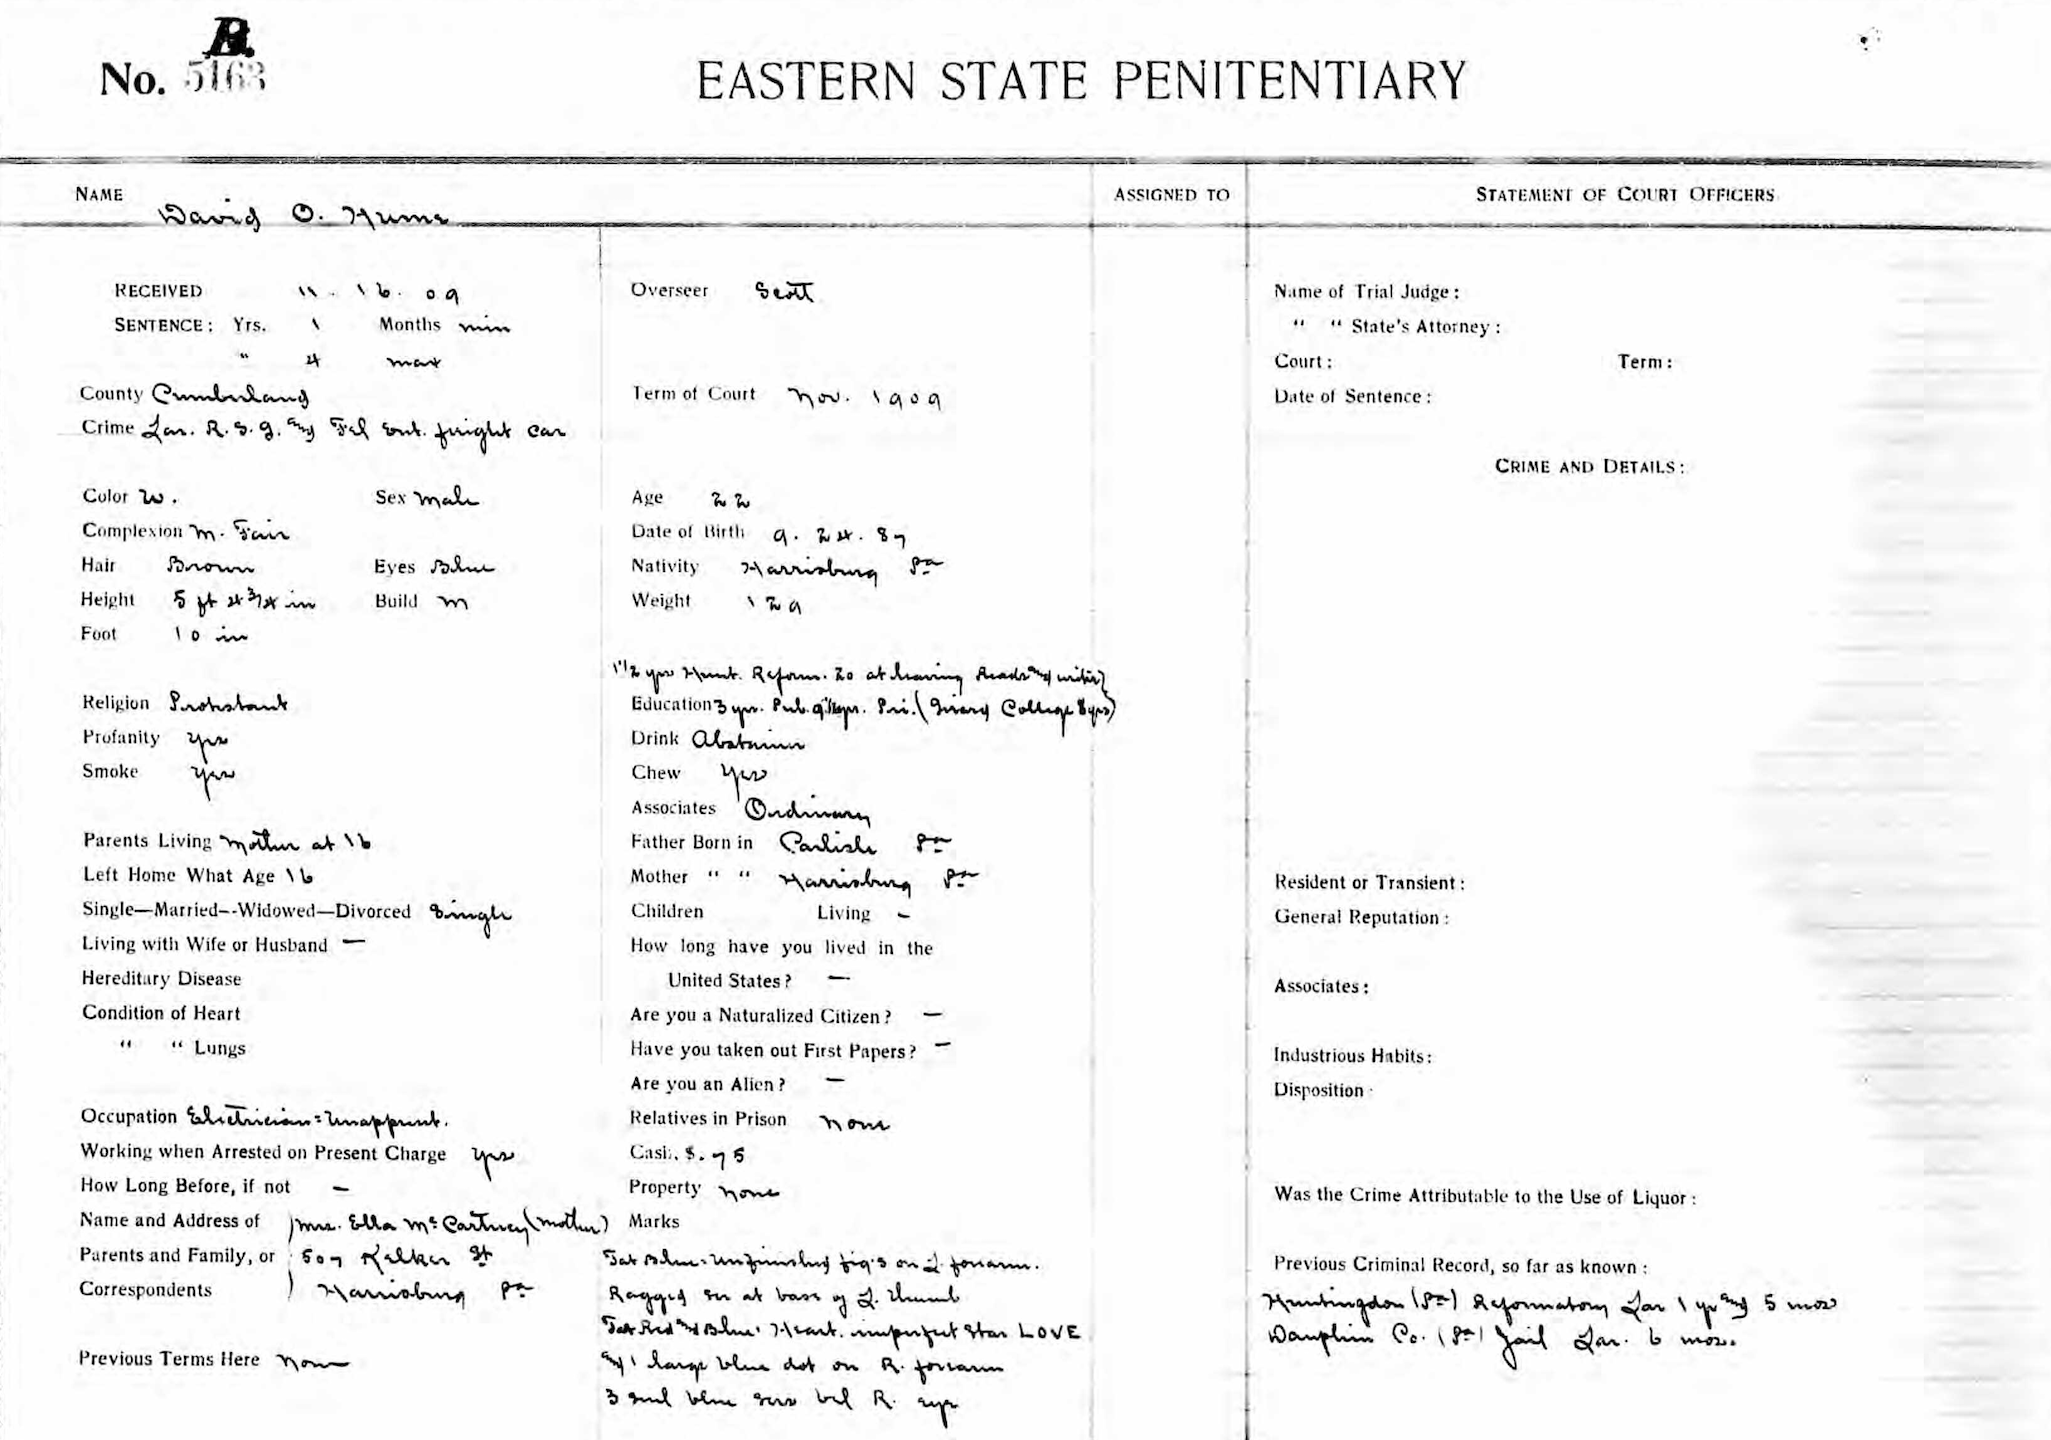 B.
No. 5163
EASTERN STATE PENITENTIARY
NAME David O. Hume
ASSIGNED TO
STATEMENT OF COURT OFFICERS
RECEIVED 11. 16. 09
SENTENCE: Yrs. 1 Months min
" 4 max
County Cumberland
Crime Lar. R. S. G. and Fel Ent. freight car
Color W. Sex Male
Complexion M. Fair
Hair Brown Eyes Blue
Height 5 ft 4 3/4 in Build M
Foot 10 in
Religion Protestant
Profanity Yes
Smoke Yes
Parents Living Mother at 16
Left Home What Age 16
Single—Married--Widowed—Divorced Single
Living with Wife or Husband —
Hereditary Disease
Condition of Heart
" " Lungs
Occupation Electrician = Unapprent.
Working when Arrested on Present Charge Yes
How Long Before, if not —
Name and Address of Mrs. Ella McCartney (Mother)
Parents and Family, or 507 Kelker St
Correspondents Harrisburg Pa
Previous Terms Here None
Overseer Scott
Term of Court Nov. 1909
Age 22
Date of Birth 9. 24. 87
Nativity Harrisburg Pa
Weight 129
1 1/2 yrs Hunt. Reform. 20 at leaving Reads and writes
Education 3 yrs. Pub. 9 1/2 yrs. Pri. (Girard College 8 yrs)
Drink Abstainer
Chew Yes
Associates Ordinary
Father Born in Carlisle Pa
Mother " " Harrisburg Pa
Children Living —
How long have you lived in the
United States? —
Are you a Naturalized Citizen? —
Have you taken out First Papers? —
Are you an Alien? —
Relatives in Prison None
Cash, $.75
Property None
Marks
Tat Blue = Unfinished fig's on L. forearm.
Ragged scr at base of L. thumb
Tat Red and Blue: Heart. imperfect star LOVE
and 1 large blue dot on R. forearm
3 sml blue scrs bel R. eye
Name of Trial Judge:
" " State's Attorney:
Court: Term:
Date of Sentence:
CRIME AND DETAILS:
Resident or Transient:
General Reputation:
Associates:
Industrious Habits:
Disposition
Was the Crime Attributable to the Use of Liquor:
Previous Criminal Record, so far as known:
Huntingdon (Pa) Reformatory Lar 1 yr and 5 mos
Dauphin Co. (Pa) Jail Lar. 6 mos.